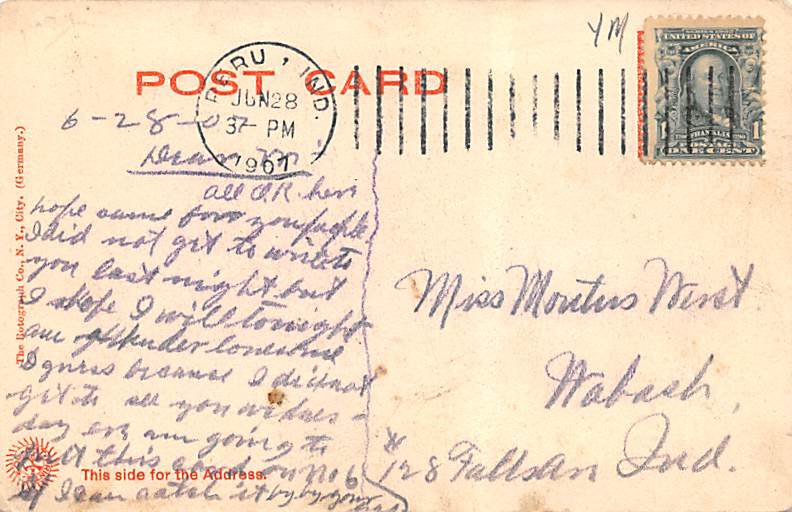 YM
SERIES 1902
UNITED STATES OF
AMERICA
FRANKLIN
1 1
POSTAGE
ONE CENT
POST CARD
PERU, IND.
JUN 28
37- PM
1907
6-28-07
Dear M
all O.K. here
hope same for you
I did not get to write to
you last night but
I hope I will tonight
am lonesome
I guess because I did not
get to see you wednes-
day eve am going to
put this card on No 6
if I can catch it by by your
Miss West.
Wabash,
#128 Falls Ind.
The Rotograph Co., N. Y., City. (Germany.)
This side for the Address.